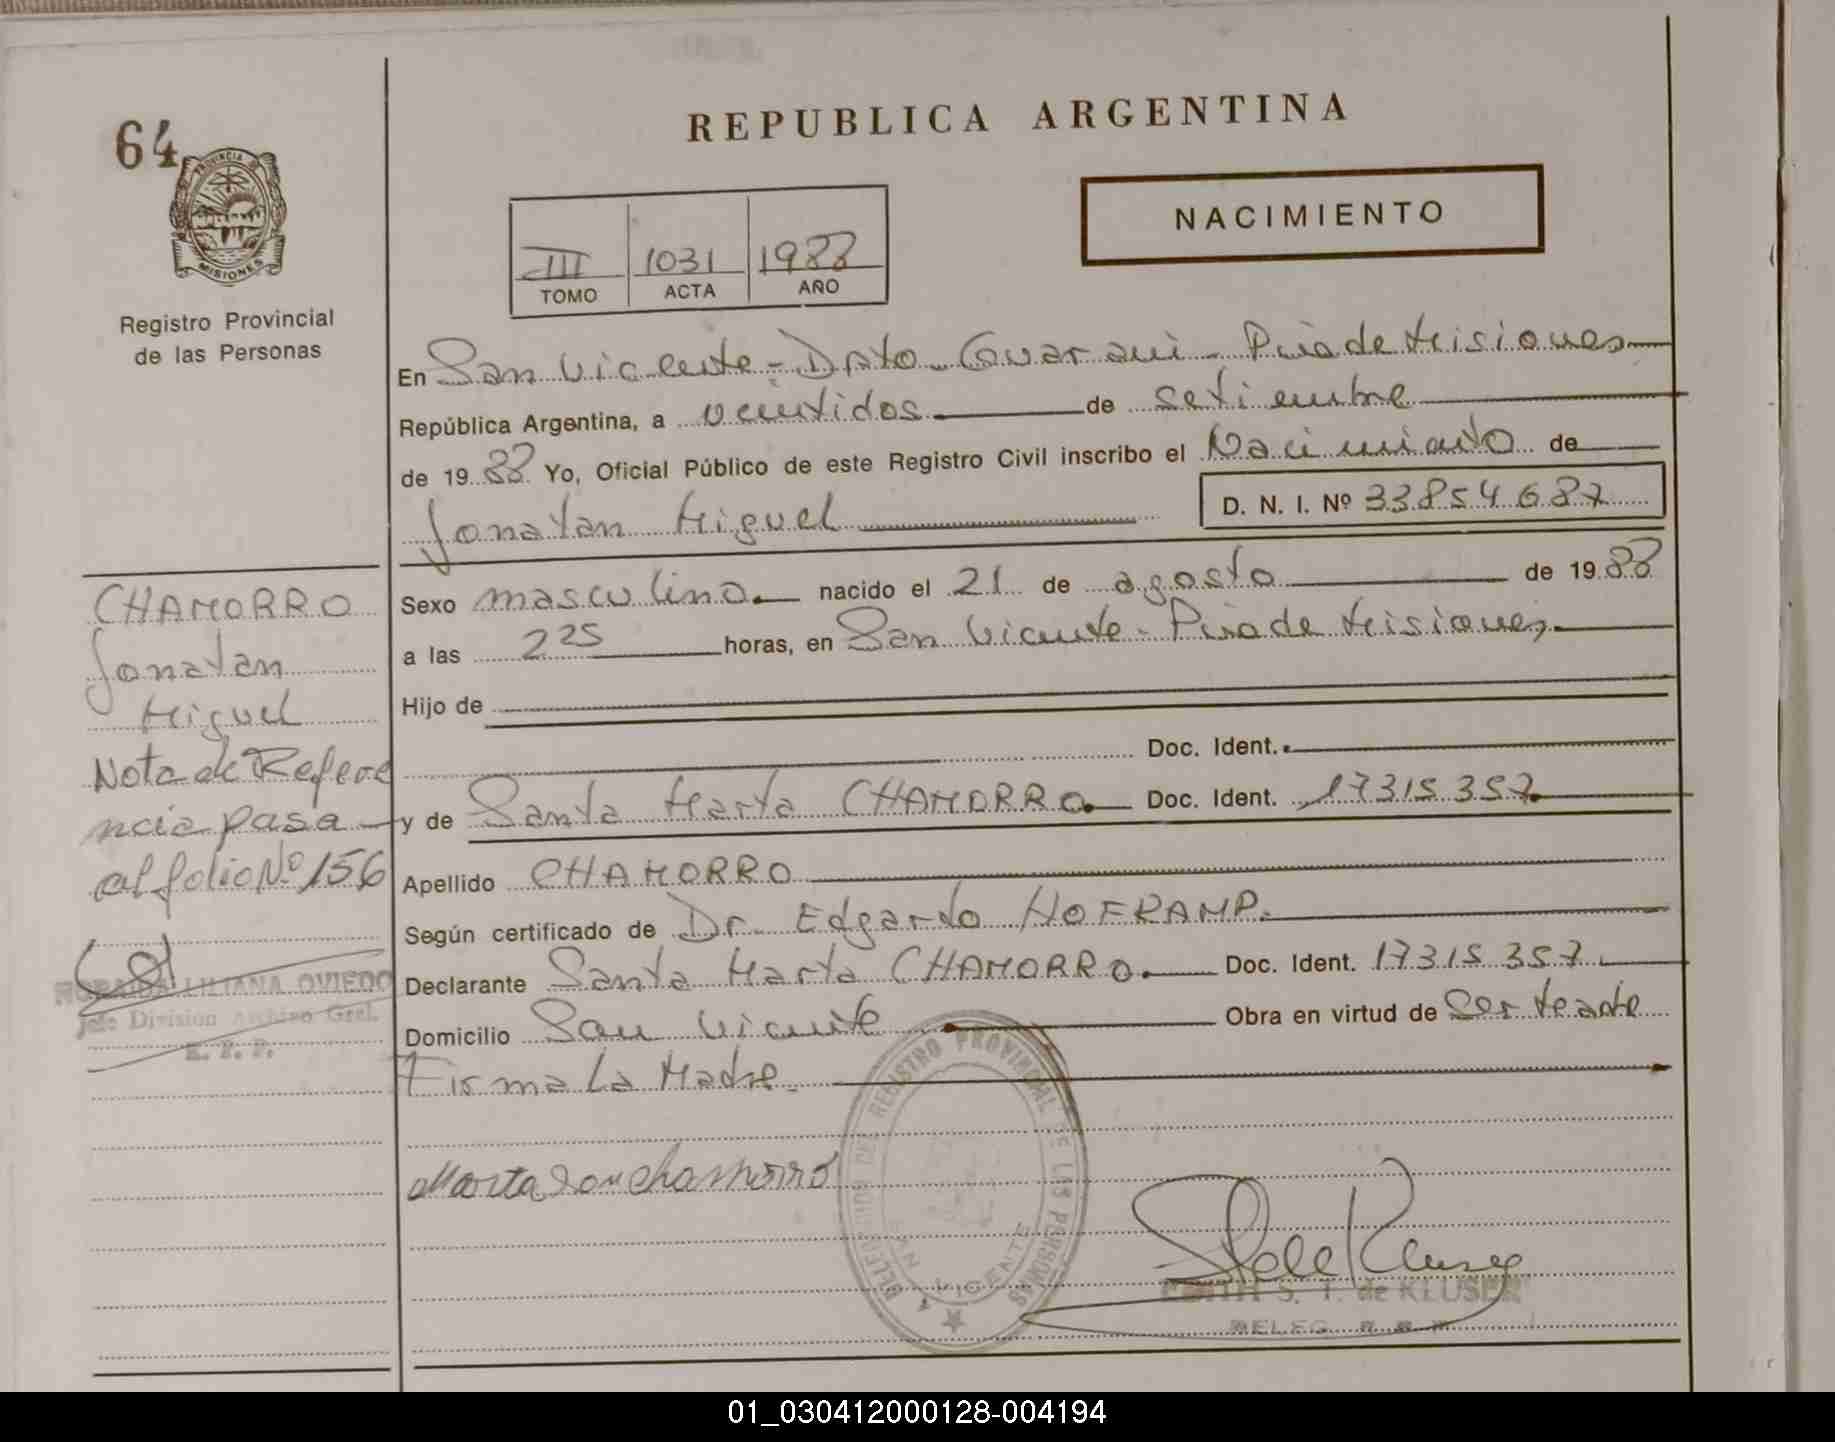 64
PROVINCIA DE
MISIONES
Registro Provincial
de las Personas
REPUBLICA ARGENTINA
NACIMIENTO
III 1031 1988
TOMO ACTA AÑO
En San Vicente - Dpto Guarani - Pcia de Misiones
República Argentina, a veintidos de setiembre
de 1988 Yo, Oficial Público de este Registro Civil inscribo el Nacimiento de
Jonatan Miguel D. N. I. Nº 33854687
Sexo masculino. nacido el 21 de agosto de 1988
a las 2 25 horas, en San Vicente - Pcia de Misiones,
Hijo de
Doc. Ident.
y de Santa Marta CHAMORRO. Doc. Ident. 17315357.
Apellido CHAMORRO
Según certificado de Dr. Edgardo HOFRAMP.
Declarante Santa Marta CHAMORRO. Doc. Ident. 17315357.
Domicilio San Vicente Obra en virtud de Ser Madre
Firma La Madre.
CHAMORRO
Jonatan
Miguel
Nota de Refere
ncia pasa
al folio Nº 156
LILIANA OVIEDO
Jefe Division Archivo Gral.
R. P. P.
Marta Chamorro
REGISTRO PROVINCIAL DE LAS PERSONAS
SAN VICENTE
EDITH S. T. de KLUSER
DELEG.
01_030412000128-004194